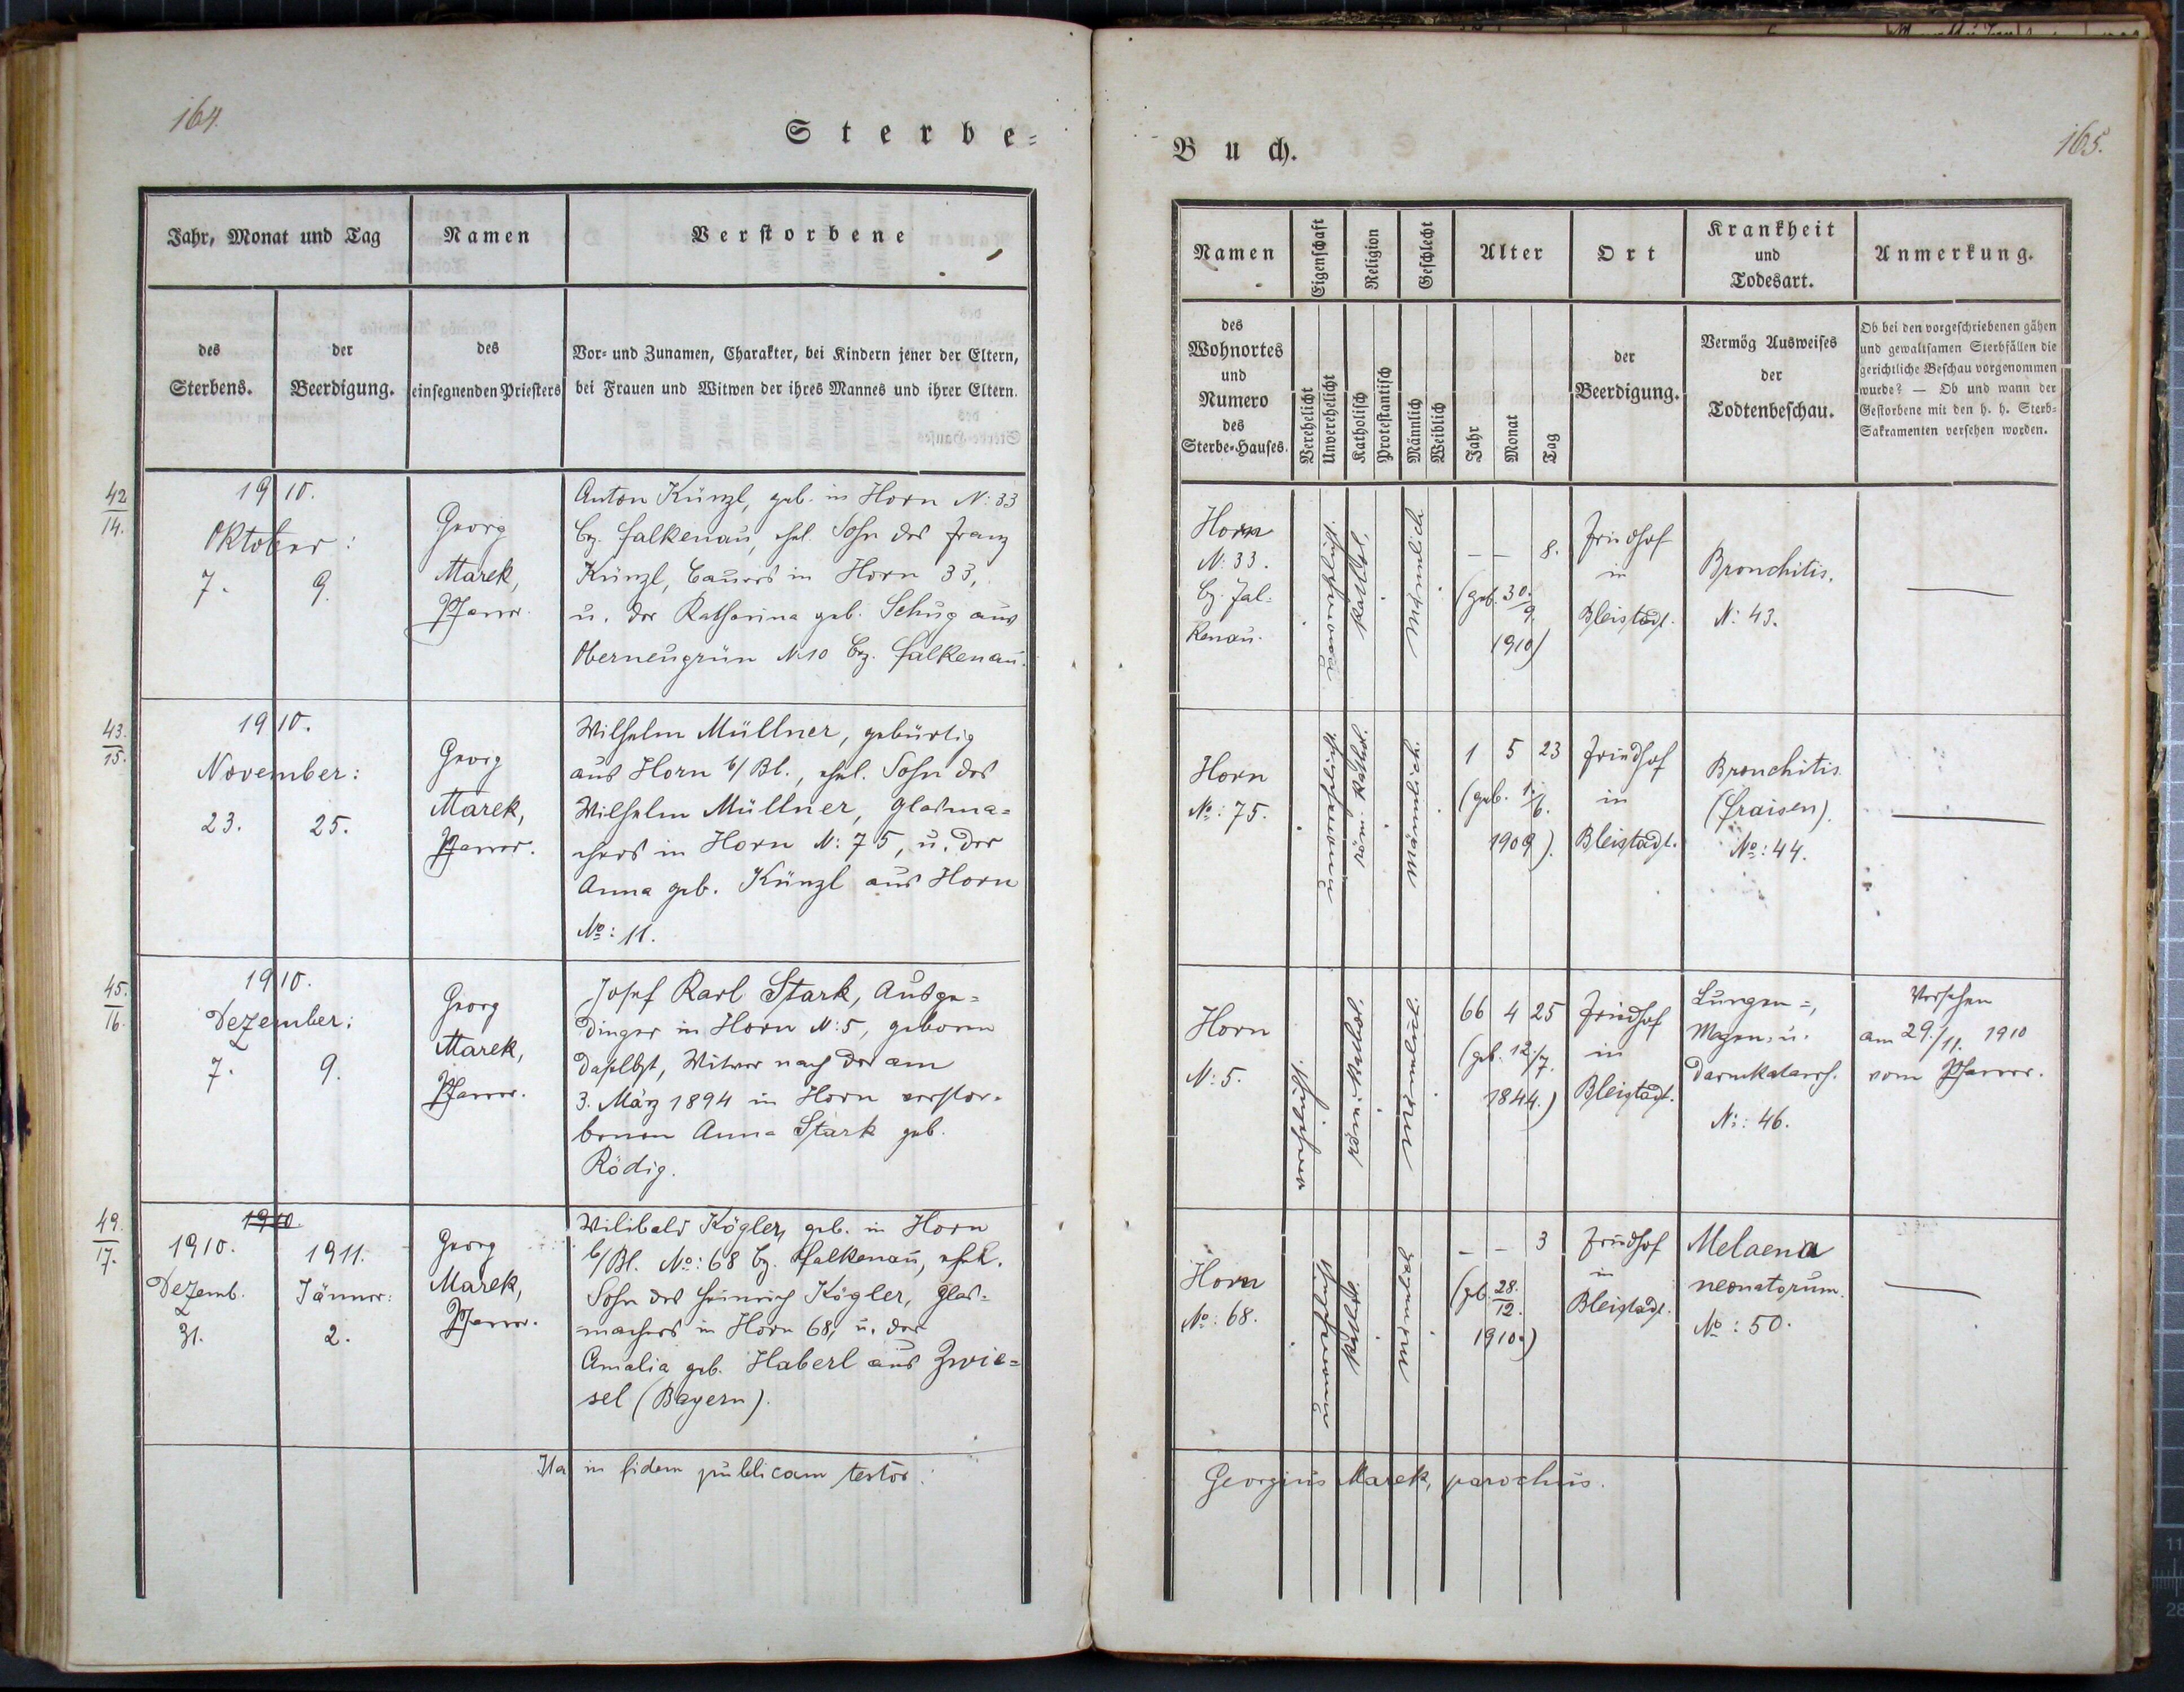 164.
Sterbe-
Jahr, Monat und Tag
Namen
Verstorbene
des
Sterbens.
der
Beerdigung.
des
einsegnenden Priesters
Vor- und Zunamen, Charakter, bei Kindern jener der Eltern,
bei Frauen und Witwen der ihres Mannes und ihrer Eltern.
42
14.
1910.
Oktober:
7.
9.
Georg
Marek,
Pfarrer.
Anton Künzl, geb. in Horn N: 33
Bz. Falkenau, ehel. Sohn des Franz
Künzl, Bauers in Horn 33,
u. der Katharina geb. Schug aus
Oberneugrün N: 10 Bz. Falkenau.
43.
15.
1910.
November:
23.
25.
Georg
Marek,
Pfarrer.
Wilhelm Müllner, gebürtig
aus Horn b/Bl., ehel. Sohn des
Wilhelm Müllner, Glasma=
chers in Horn N: 75, u. der
Anna geb. Künzl aus Horn
No: 11.
45.
16.
1910.
Dezember:
7.
9.
Georg
Marek,
Pfarrer.
Josef Karl Stark, Ausge=
dinger in Horn N: 5, geboren
daselbst, Witwer nach der am
3. März 1894 in Horn verstor=
benen Anna Stark geb.
Rödig.
49.
17.
1910.
1910.
Dezemb.
31.
1911.
Jänner:
2.
Georg
Marek,
Pfarrer.
Wilibald Kögler, geb. in Horn
b/Bl. No: 68 Bz. Falkenau, ehel.
Sohn des Heinrich Kögler, Glas=
machers in Horn 68, u. der
Amalia geb. Haberl aus Zwie=
sel (Bayern).
Ita in fidem publicam testor:
Buch.
165.
Namen
Eigenschaft
Religion
Geschlecht
Alter
Ort
Krankheit
und
Todesart.
Anmerkung.
des
Wohnortes
und
Numero
des
Sterbe-Hauses.
Verehelicht
Unverehelicht
Katholisch
Protestantisch
Männlich
Weiblich
Jahr
Monat
Tag
der
Beerdigung.
Vermög Ausweises
der
Todtenbeschau.
Ob bei den vorgeschriebenen gähen
und gewaltsamen Sterbfällen die
gerichtliche Beschau vorgenommen
wurde? — Ob und wann der
Gestorbene mit den h. h. Sterb-
Sakramenten versehen worden.
Horn
N: 33.
Bz. Fal=
kenau.
kathol.
männlich
– – 8.
(geb. 30./9.
1910)
Friedhof
in
Bleistadt.
Bronchitis.
N: 43.
—
Horn
No: 75.
röm. kathol.
männlich
1 5 23
(geb. 1./6.
1909).
Friedhof
in
Bleistadt.
Bronchitis
(Fraisen).
No: 44.
—
Horn
N: 5.
röm. kathol.
männlich
66 4 25
(geb. 12./7.
1844.)
Friedhof
in
Bleistadt.
Lungen=,
Magen= u.
Darmkatarrh.
N: 46.
Versehen
am 29./11. 1910
vom Pfarrer.
Horn
No: 68.
kathol.
– – 3
(geb. 28./12.
1910.)
Friedhof
in
Bleistadt.
Melaena
neonatorum.
No: 50.
—
Georgius Marek, parochus.